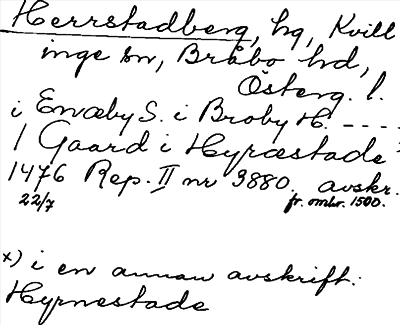 Herrstadberg, hg, Kvill
inge sn, Bråbo hd,
Österg. l.
i Enæby S. i Broby H. ----
1 Gaard i Hyræstade x)
1476 Rep. II nr 3880, avskr.
22/7 fr. omkr. 1500.
x) i en annan avskrift:
Hyrnestade